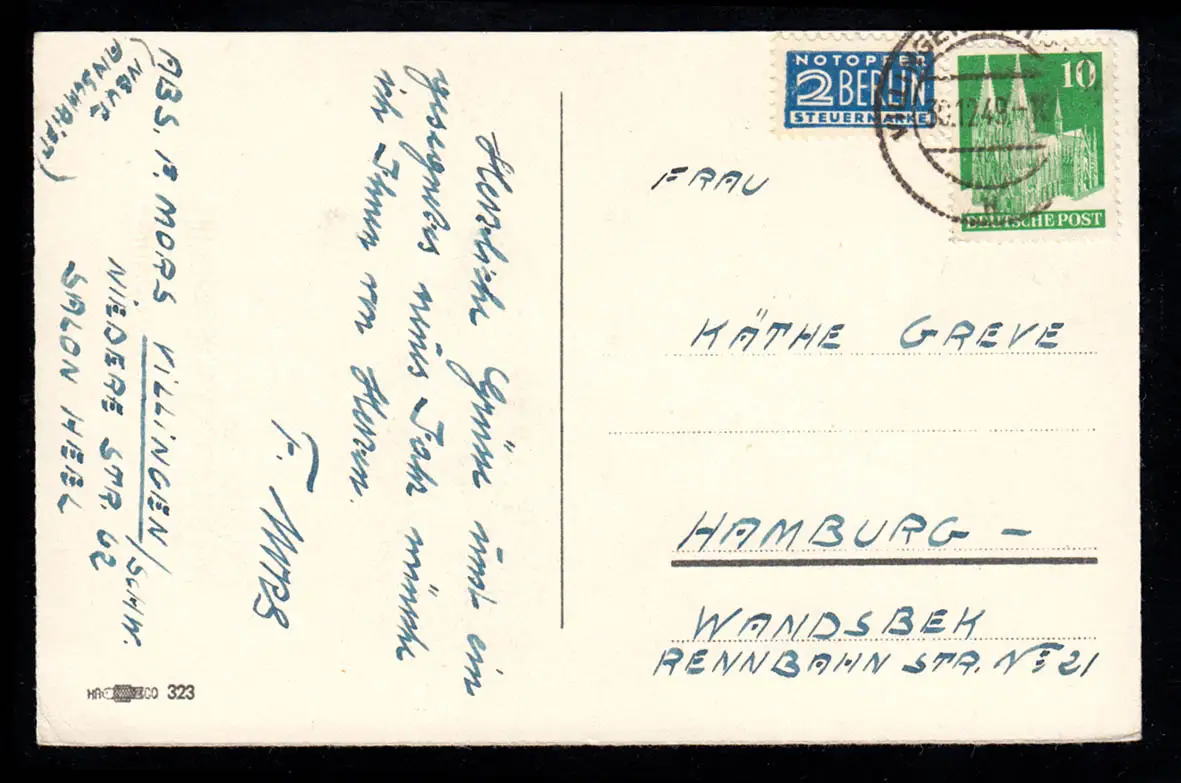 (NEUE
ANSCHRIFT)
ABS. F. MORS VILLINGEN/SCHW.
NIEDERE STR. 62
SALON HEBL
Herzliche Grüße und ein
gesegnetes neues Jahr wünsche
ich Ihnen von Herzen.
F. Mors
323
NOTOPFER
2 BERLIN
STEUERMARKE
VILLINGEN
30.12.49
10
DEUTSCHE POST
FRAU
KÄTHE GREVE
HAMBURG -
WANDSBEK
RENNBAHN STR. No 21